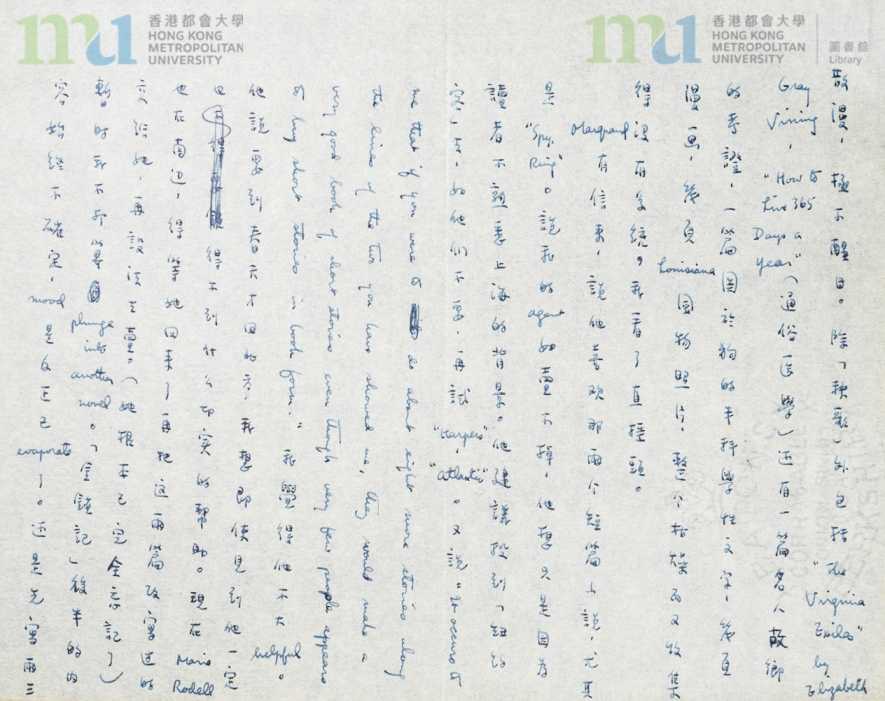 香港都會大學
HONG KONG
METROPOLITAN
UNIVERSITY
香港都會大學
HONG KONG
METROPOLITAN
UNIVERSITY
圖書館
Library
散漫，極不醒目。除「秧歌」外包括 "The Virginia Exiles" by Elizabeth
Gray Vining，"How to Live 365 Days a Year"（通俗医學）还有一篇名人故鄉
的考證，一篇関於狗的半科學性文字，幾頁
漫画，幾頁 Louisiana 風物照片，整个枯燥而又收集
得没有系統。我看了直搖頭。
Marquand 有信來，說他喜欢那兩个短篇小說，尤其
是 "Spy Ring"。說我的 agent 如賣不掉，他想只是因為
讀者不熟悉上海的背景。他建議投到「紐約
客」，如他們不要，再試 "Harpers"，"Atlantic"。又說 "It occurs to
me that if you were to do about eight more stories along
the lines of the two you have showed me, they would make a
very good book of short stories, even though very few people appears
to buy short stories in book form." 我覺得他不大 helpful。
他說要到春天才回北方，我想即使見到他一定
也得不到什么切实的幫助。現在 Marie Rodell
也在南边，得等她回來了再把這兩篇改寫过的
交給她，再設法去賣。（她根本已完全忘記了）
暫時我不預備 plunge into another novel。「金鎖記」後半的內
容始終不確定，mood 是反正已 evaporate 了。还是先寫兩三